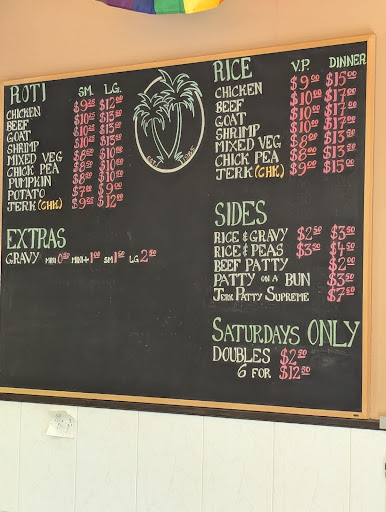 ROTI SM. LG.
CHICKEN $9.25 $12.00
BEEF $10.25 $13.00
GOAT $10.25 $13.00
SHRIMP $10.25 $13.00
MIXED VEG $8.00 $10.50
CHICK PEA $8.00 $10.50
PUMPKIN $8.00 $10.50
POTATO $7.00 $9.00
JERK (CHK) $9.25 $12.00
EXTRAS
GRAVY MINI 0.50 MINI+ 1.00 SM 1.50 LG 2.50
RICE V.P. DINNER
CHICKEN $9.00 $15.00
BEEF $10.00 $17.00
GOAT $10.00 $17.00
SHRIMP $10.00 $17.00
MIXED VEG $8.00 $13.50
CHICK PEA $8.00 $13.50
JERK (CHK) $9.00 $15.00
SIDES
RICE & GRAVY $2.50 $3.50
RICE & PEAS $3.50 $4.50
BEEF PATTY $2.00
PATTY ON A BUN $3.50
JERK PATTY SUPREME $7.50
SATURDAYS ONLY
DOUBLES $2.50
6 FOR $12.50